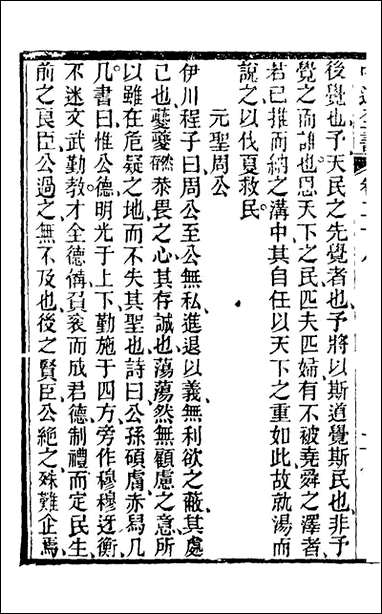 後覺也予天民之先覺者也予將以斯道覺斯民也非予
覺之而誰也思天下之民匹夫匹婦有不被堯舜之澤者
若已推而納之溝中其自任以天下之重如此故就湯而
說之以伐夏救民
元聖周公
伊川程子曰周公至公無私進退以義無利欲之蔽其處
己也夔夔然恭畏之心其存誠也蕩蕩然無顧慮之意所
以雖在危疑之地而不失其聖也詩曰公孫碩膚赤舄几
几書曰惟公德明光于上下勤施于四方旁作穆穆迓衡
不迷文武勤教才全德備負扆而成君德制禮而定民生
前之良臣公過之無不及也後之賢臣公絶之殊難企焉